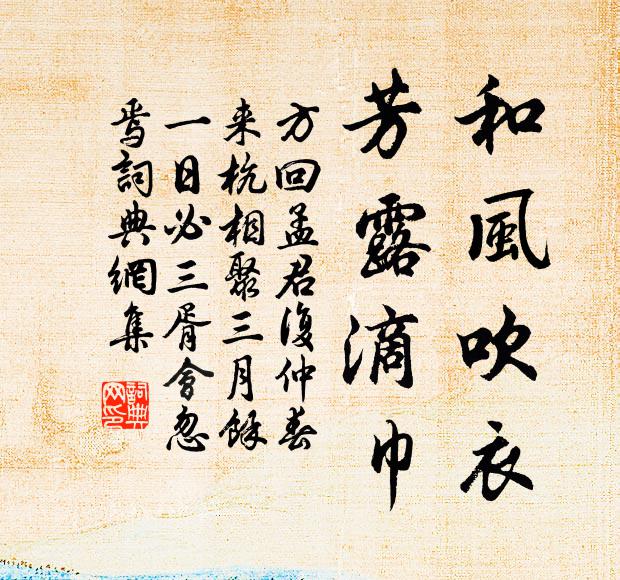 和風吹衣
芳露滴巾
方回孟君復仲春
来杭相聚三月餘
一日必三胥會忽
焉詞典網集
詞典
网